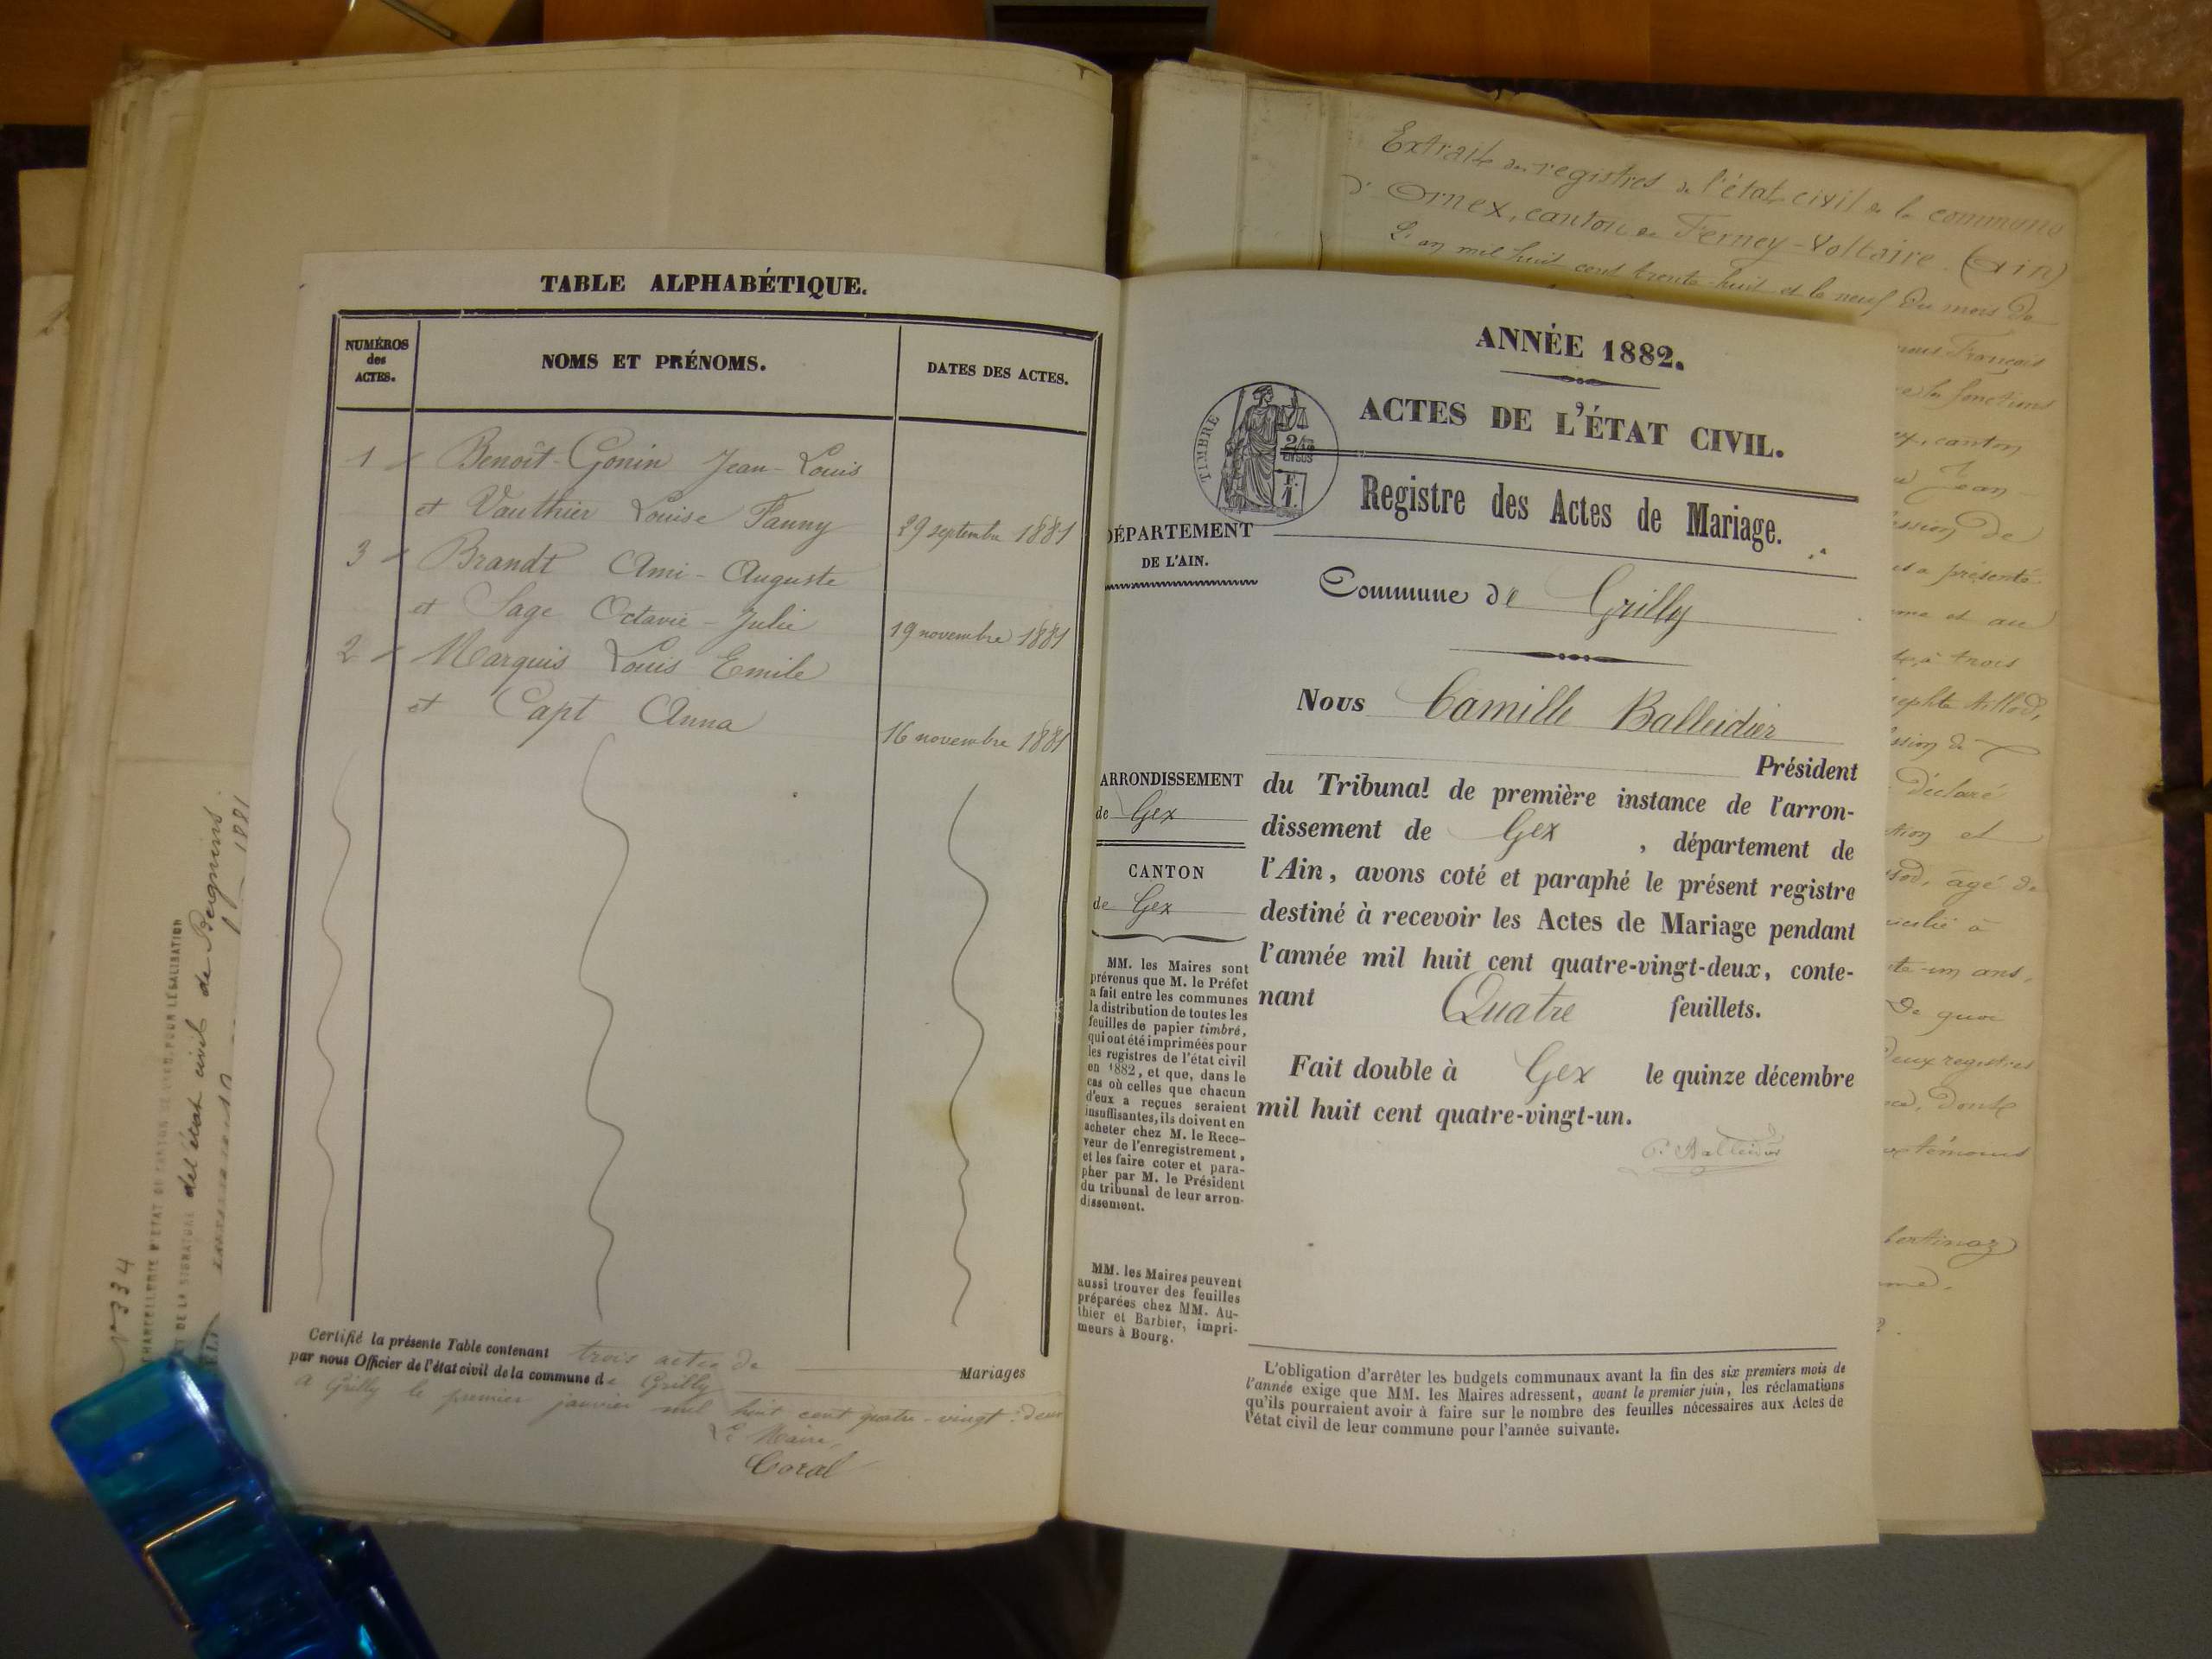 TABLE ALPHABÉTIQUE.
NUMÉROS
des
ACTES.
NOMS ET PRÉNOMS.
DATES DES ACTES.
1 Benoît-Gonin Jean-Louis
et Vauthier Louise Fanny 29 septembre 1881
3 Brandt Ami-Auguste
et Sage Octavie-Julie 19 novembre 1881
2 Marquis Louis Emile
et Capt Anna 16 novembre 1881
Certifié la présente Table contenant trois actes de Mariages
par nous Officier de l'état civil de la commune de Grilly
A Grilly le premier janvier mil huit cent quatre-vingt-deux
Le Maire,
N° 334
de l'état civil de Begnins
1881
ANNÉE 1882.
ACTES DE L'ÉTAT CIVIL.
TIMBRE
Registre des Actes de Mariage.
DÉPARTEMENT
DE L'AIN.
Commune de Grilly
Nous Camille Balleidier
Président
du Tribunal de première instance de l'arron-
dissement de Gex, département de
l'Ain, avons coté et paraphé le présent registre
destiné à recevoir les Actes de Mariage pendant
l'année mil huit cent quatre-vingt-deux, conte-
nant Quatre feuillets.
Fait double à Gex le quinze décembre
mil huit cent quatre-vingt-un.
C. Balleidier
ARRONDISSEMENT
de Gex
CANTON
de Gex
MM. les Maires sont
prévenus que M. le Préfet
a fait entre les communes
la distribution de toutes les
feuilles de papier timbré,
qui ont été imprimées pour
les registres de l'état civil
en 1882, et que, dans le
cas où celles que chacun
d'eux a reçues seraient
insuffisantes, ils doivent en
acheter chez M. le Rece-
veur de l'enregistrement,
et les faire coter et para-
pher par M. le Président
du tribunal de leur arron-
dissement.
MM. les Maires peuvent
aussi trouver des feuilles
préparées chez MM. Au-
thier et Barbier, impri-
meurs à Bourg.
L'obligation d'arrêter les budgets communaux avant la fin des six premiers mois de
l'année exige que MM. les Maires adressent, avant le premier juin, les réclamations
qu'ils pourraient avoir à faire sur le nombre des feuilles nécessaires aux Actes de
l'état civil de leur commune pour l'année suivante.
Extrait des registres de l'état civil de la commune
d'Ornex, canton de Ferney-Voltaire (Ain)
L'an mil huit cent trente-huit et le neuf du mois de
François
fonctions
canton
Jean
de
présenté
et au
à trois
déclaré
et
âgé de
à
ans,
De quoi
deux registres
dont
témoins